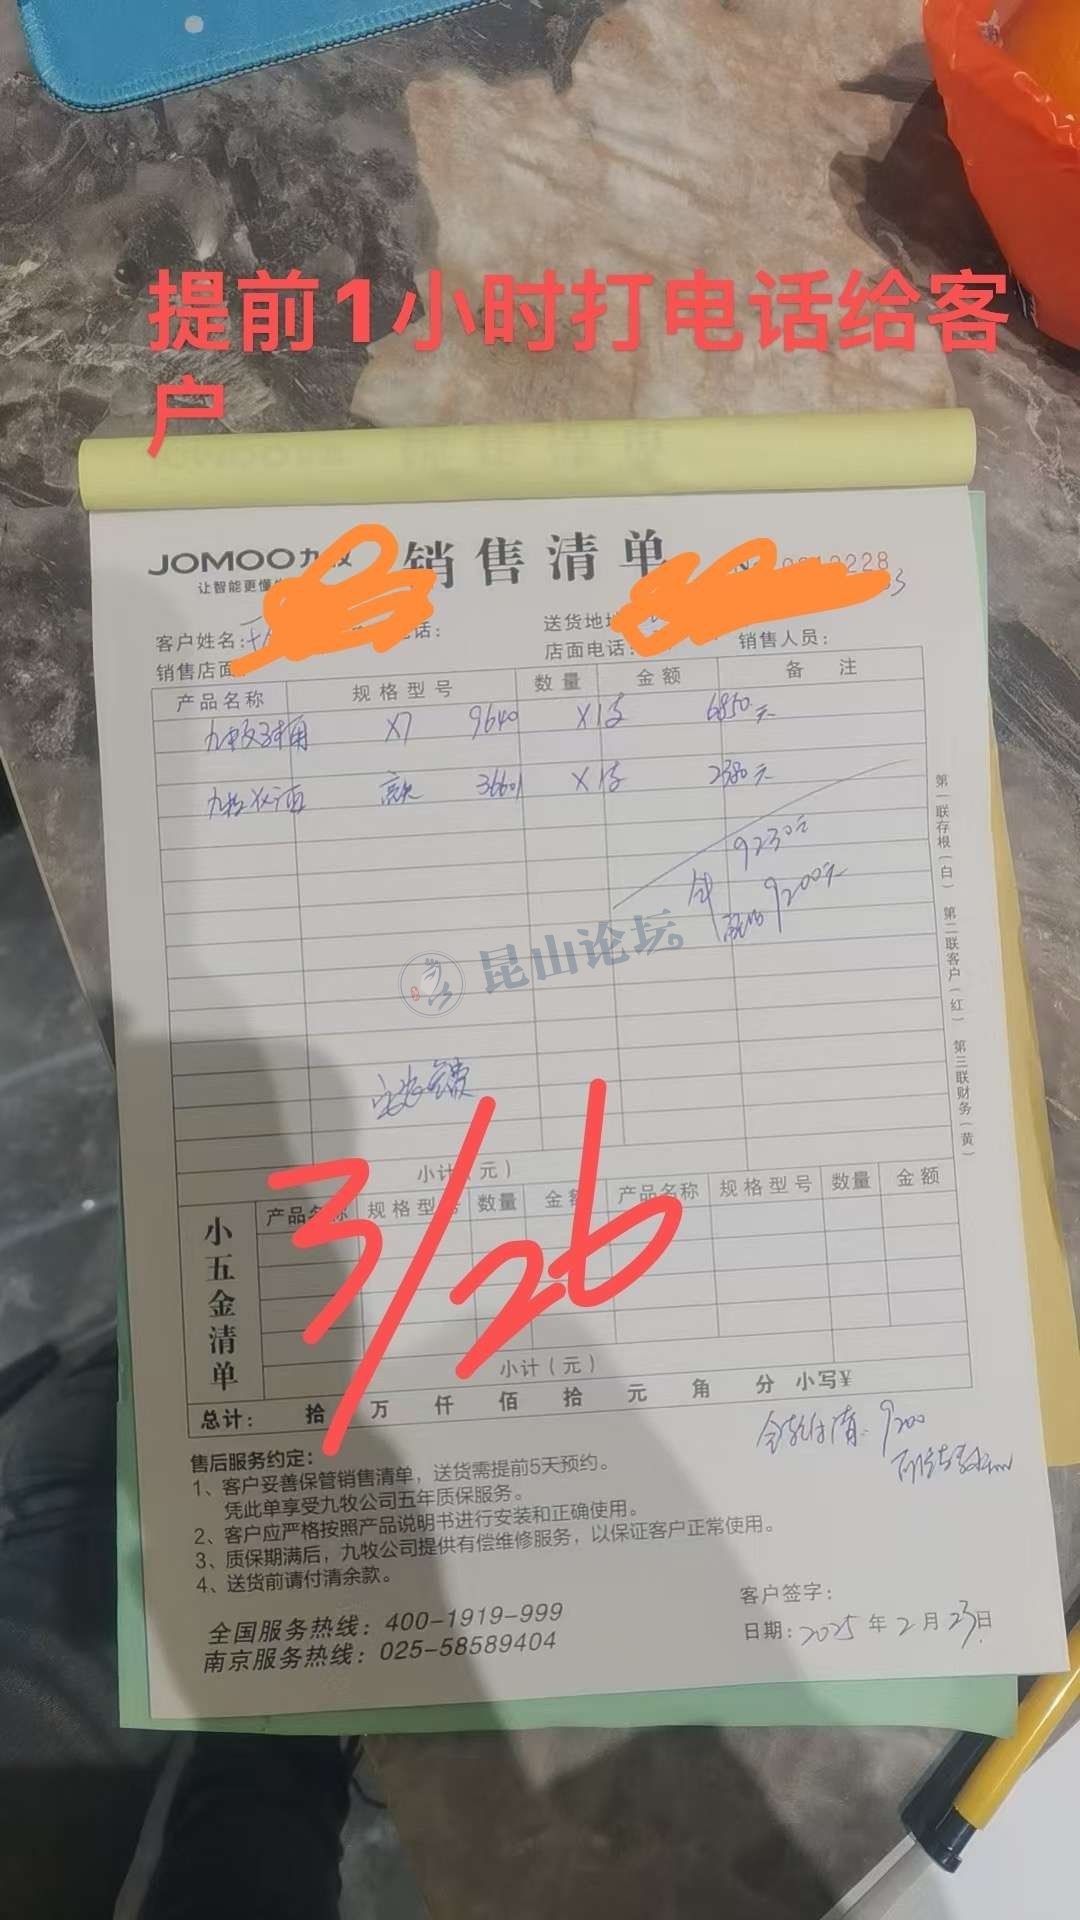 提前1小时打电话给客
户
JOMOO九牧 销售清单
让智能更懂 0813228
客户姓名: 电话: 送货地址
销售店面: 店面电话: 销售人员:
产品名称 规格型号 数量 金额 备注
九牧马桶 X7 9640 X1支 6850元
九牧花洒 36601 X1支 2380元
9230元
9200元
第一联存根(白) 第二联客户(红) 第三联财务(黄)
昆山论坛
3/26
小计(元)
小五金清单
产品名称 规格型号 数量 金额 产品名称 规格型号 数量 金额
小计(元)
总计: 拾 万 仟 佰 拾 元 角 分 小写¥
全款付清. 9200
售后服务约定:
1、客户妥善保管销售清单,送货需提前5天预约。
凭此单享受九牧公司五年质保服务。
2、客户应严格按照产品说明书进行安装和正确使用。
3、质保期满后,九牧公司提供有偿维修服务,以保证客户正常使用。
4、送货前请付清余款。
全国服务热线:400-1919-999
南京服务热线:025-58589404
客户签字:
日期:2025年2月23日